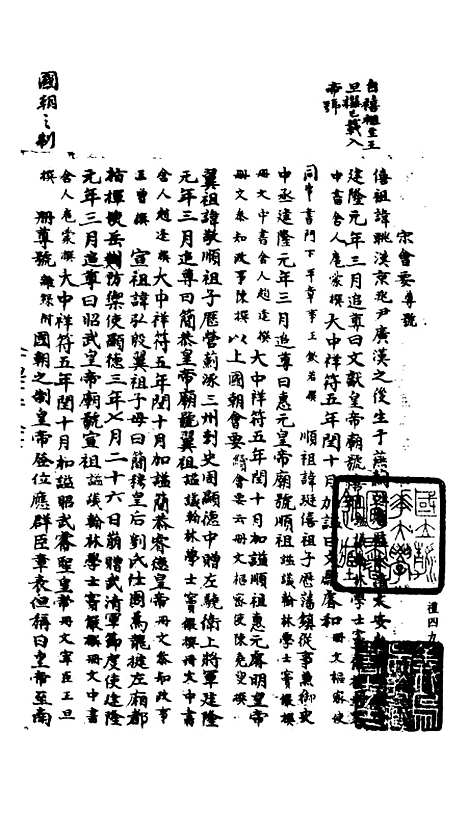 宋會要 尊號
僖祖諱朓漢京兆尹廣漢之後生于燕
建隆元年三月追尊曰文獻皇帝廟號僖祖謚議翰林學士竇
中書舍人扈蒙撰大中祥符五年閏十月加謚曰文獻睿和冊文樞密使
同中書門下平章事王欽若撰 順祖諱珽僖祖子歷藩鎮從事兼御史
中丞建隆元年三月追尊曰惠元皇帝廟號順祖謚議翰林學士竇儼撰
冊文中書舍人趙逢撰大中祥符五年閏十月加謚順祖惠元睿明皇帝
冊文參知政事陳撰以上國朝會要續會要云冊文樞密使陳堯叟撰
翼祖諱敬順祖子歷營薊涿三州刺史周顯德中贈左驍衛上將軍建隆
元年三月追尊曰簡恭皇帝廟號翼祖謚議翰林學士竇儼撰冊文中書
舍人趙逢撰大中祥符五年閏十月加謚簡恭睿德皇帝冊文參知政事
王曾撰 宣祖諱弘殷翼祖子母曰簡穆皇后劉氏仕周爲龍捷左廂都
指揮使岳州防禦使顯德三年七月二十六日崩贈武清軍節度使建隆
元年三月追尊曰昭武皇帝廟號宣祖謚議翰林學士竇儼撰冊文中書
舍人扈蒙撰大中祥符五年閏十月加謚昭武睿聖皇帝冊文宰臣王旦
撰 冊尊號雜錄附 國朝之制皇帝登位應群臣章表但稱曰皇帝至南
自僖祖至王旦撰已載入帝號
國朝之制
禮四九